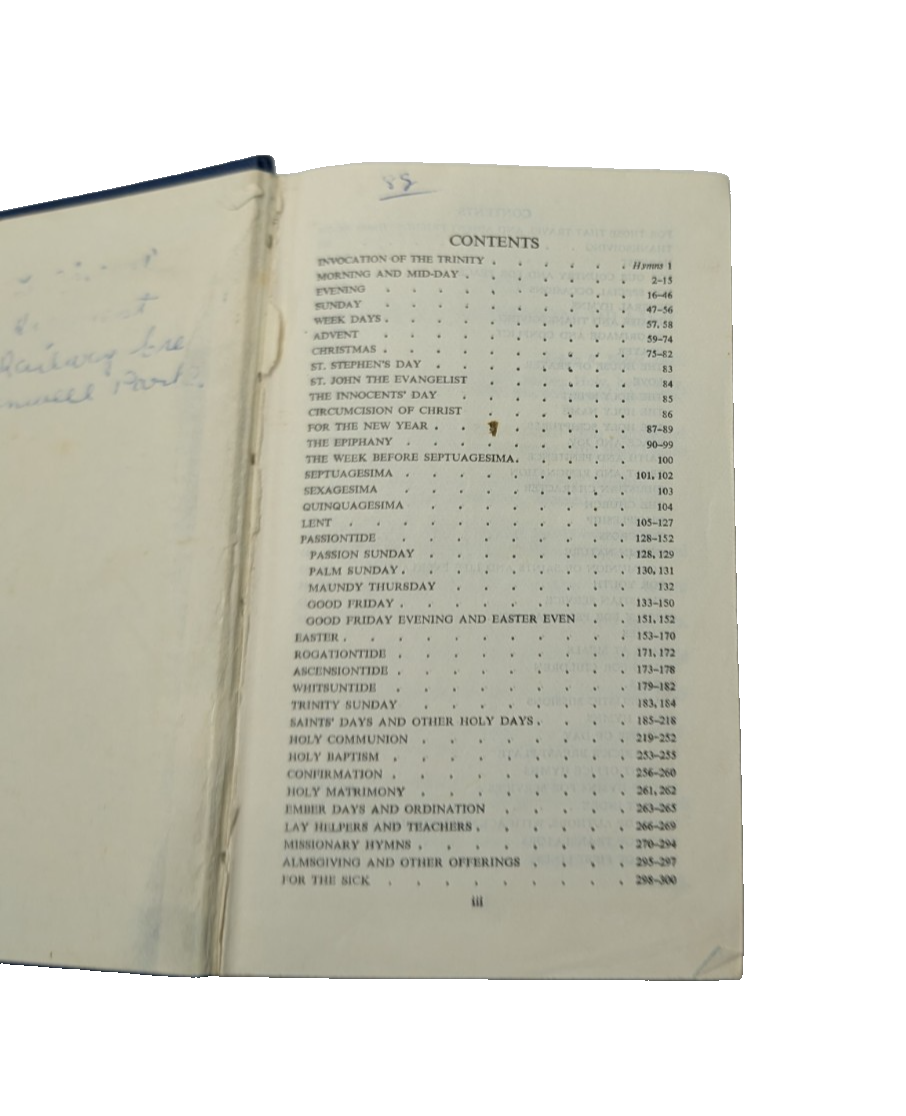 CONTENTS
INVOCATION OF THE TRINITY . . . . . . Hymns 1
MORNING AND MID-DAY . . . . . . . 2–15
EVENING . . . . . . . . . 16–46
SUNDAY . . . . . . . . . 47–56
WEEK DAYS . . . . . . . . . 57, 58
ADVENT . . . . . . . . . 59–74
CHRISTMAS . . . . . . . . . 75–82
ST. STEPHEN'S DAY . . . . . . . . 83
ST. JOHN THE EVANGELIST . . . . . . 84
THE INNOCENTS' DAY . . . . . . . 85
CIRCUMCISION OF CHRIST . . . . . . 86
FOR THE NEW YEAR . . . . . . . . 87–89
THE EPIPHANY . . . . . . . . . 90–99
THE WEEK BEFORE SEPTUAGESIMA . . . . . 100
SEPTUAGESIMA . . . . . . . . . 101, 102
SEXAGESIMA . . . . . . . . . 103
QUINQUAGESIMA . . . . . . . . 104
LENT . . . . . . . . . . . 105–127
PASSIONTIDE . . . . . . . . . 128–152
PASSION SUNDAY . . . . . . . . 128, 129
PALM SUNDAY . . . . . . . . . 130, 131
MAUNDY THURSDAY . . . . . . . 132
GOOD FRIDAY . . . . . . . . . 133–150
GOOD FRIDAY EVENING AND EASTER EVEN . . 151, 152
EASTER . . . . . . . . . . . 153–170
ROGATIONTIDE . . . . . . . . . 171, 172
ASCENSIONTIDE . . . . . . . . . 173–178
WHITSUNTIDE . . . . . . . . . 179–182
TRINITY SUNDAY . . . . . . . . . 183, 184
SAINTS' DAYS AND OTHER HOLY DAYS . . . . 185–218
HOLY COMMUNION . . . . . . . . 219–252
HOLY BAPTISM . . . . . . . . . 253–255
CONFIRMATION . . . . . . . . . 256–260
HOLY MATRIMONY . . . . . . . . 261, 262
EMBER DAYS AND ORDINATION . . . . . 263–265
LAY HELPERS AND TEACHERS . . . . . . 266–269
MISSIONARY HYMNS . . . . . . . . 270–294
ALMSGIVING AND OTHER OFFERINGS . . . . 295–297
FOR THE SICK . . . . . . . . . 298–300
iii